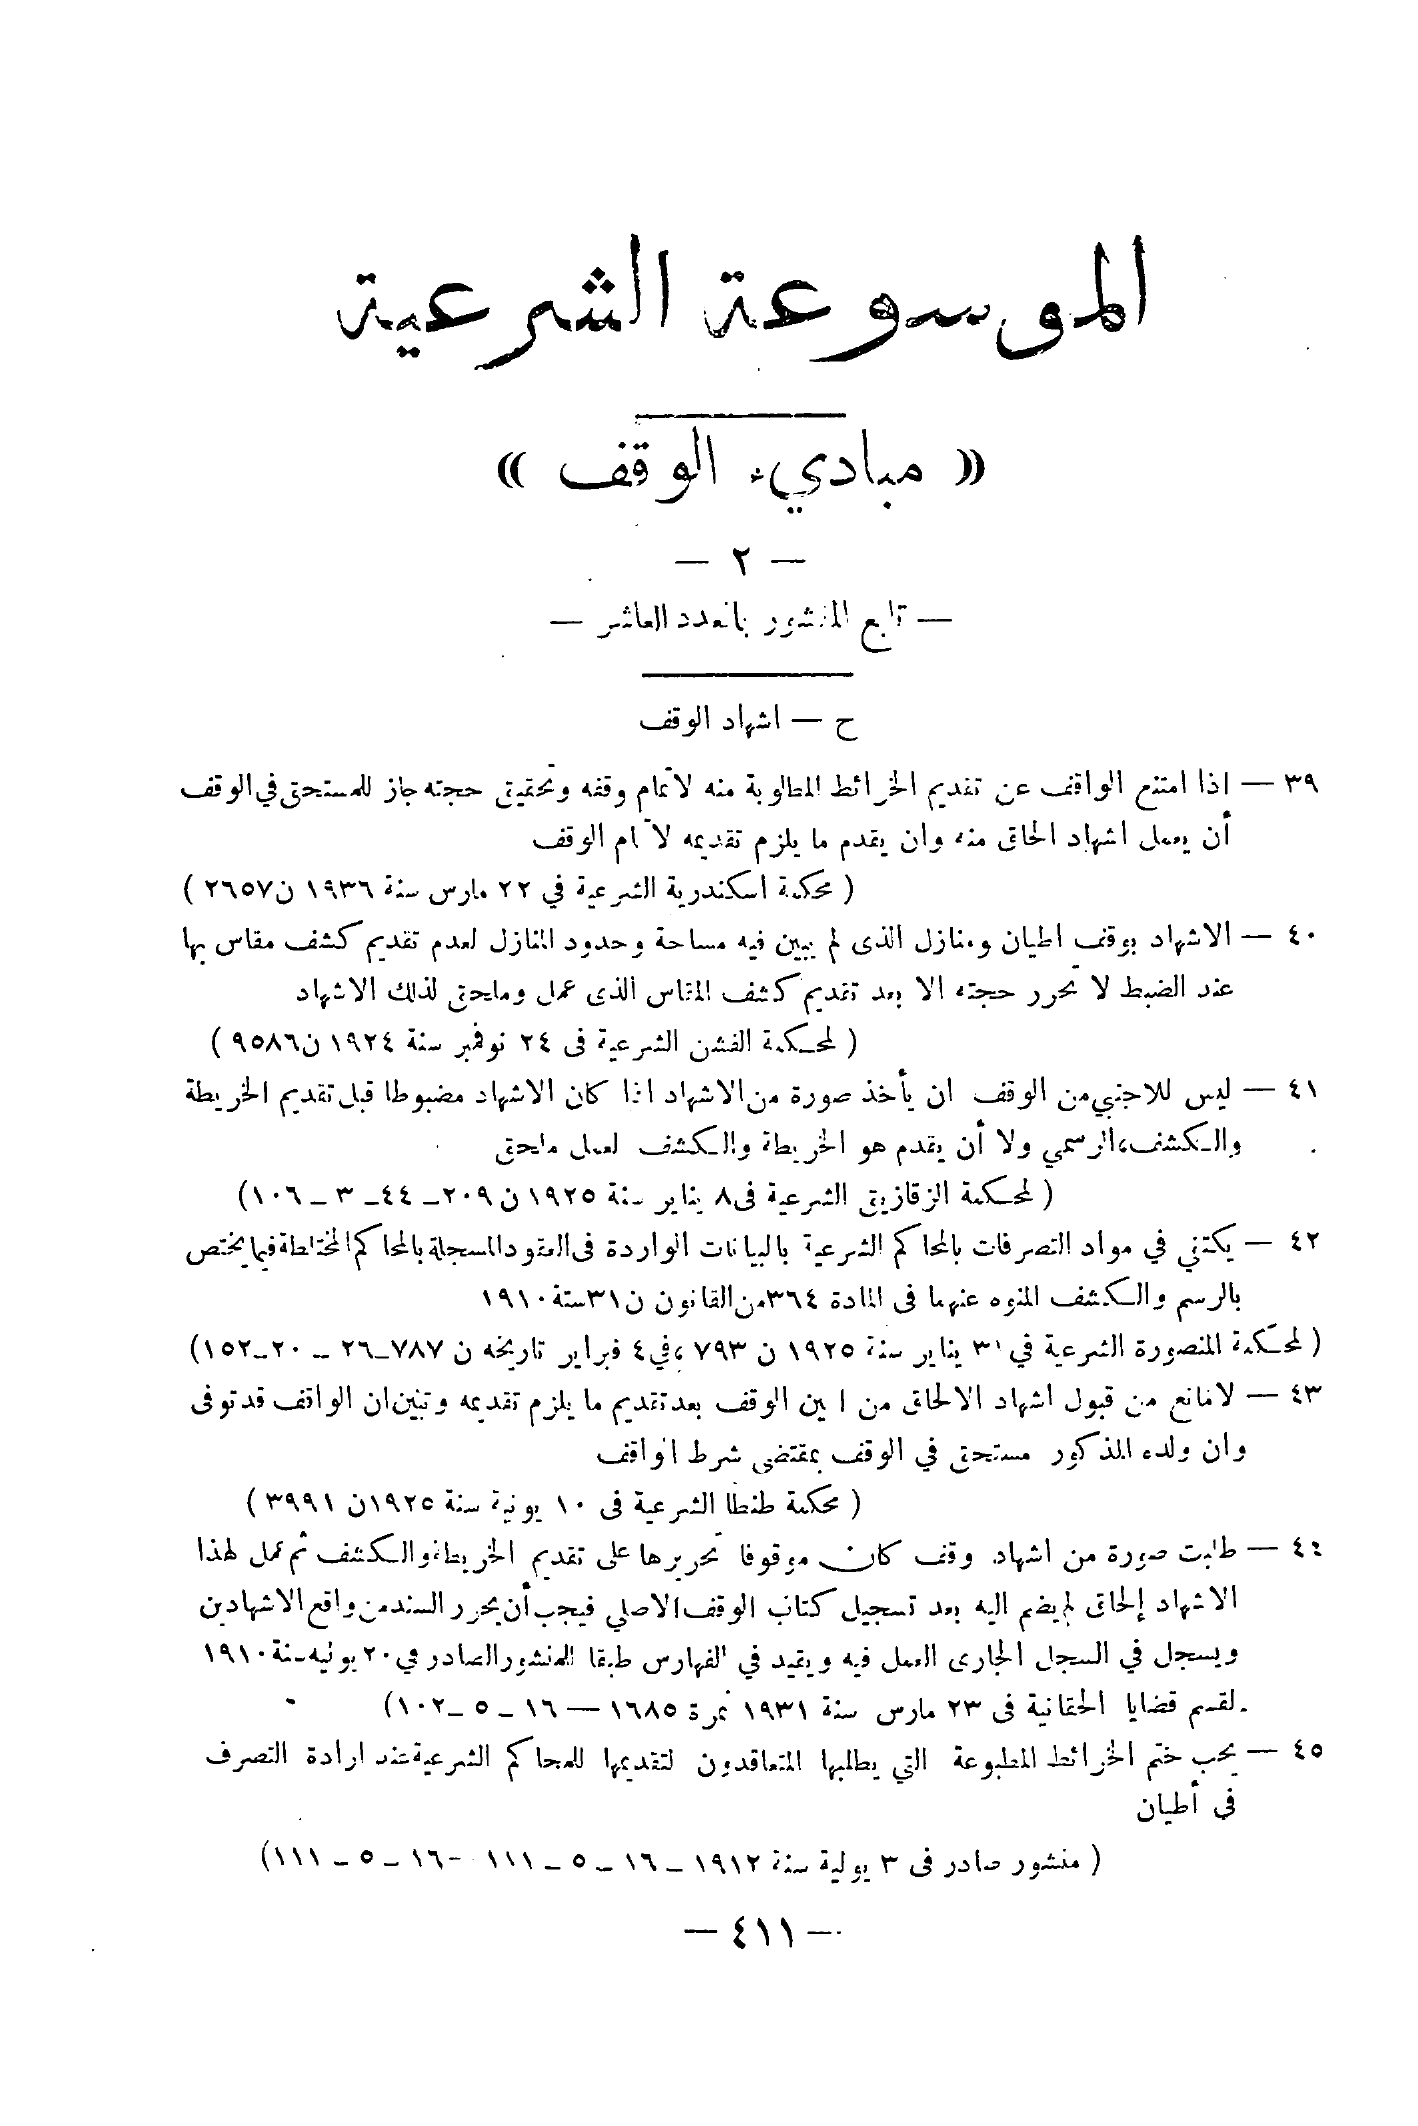 الموسوعة الشرعية
« مبادىء الوقف »
— ٢ —
— تابع المنشور بالعدد العاشر —
ح — اشهاد الوقف
٣٩ — اذا امتنع الواقف عن تقديم الخرائط المطلوبة منه لاتمام وقفه وتحقيق حجته جاز للمستحق في الوقف
أن يعمل اشهاد الحاق منه وان يقدم ما يلزم تقديمه لاتمام الوقف
( محكمة اسكندرية الشرعية في ٢٢ مارس سنة ١٩٣٦ ن ٢٦٥٧ )
٤٠ — الاشهاد بوقف اطيان ومنازل الذى لم يبين فيه مساحة وحدود المنازل لعدم تقديم كشف مقاس بها
عند الضبط لا تحرر حجته الا بعد تقديم كشف المقاس الذى عمل وملحق لذلك الاشهاد
( لمحكمة الفشن الشرعية فى ٢٤ نوفمبر سنة ١٩٢٤ ن ٩٥٨٦ )
٤١ — ليس للاجنبي من الوقف ان يأخذ صورة من الاشهاد اذا كان الاشهاد مضبوطا قبل تقديم الخريطة
والكشف الرسمي ولا أن يقدم هو الخريطة والكشف لعمل ملحق
( لمحكمة الزقازيق الشرعية فى ٨ يناير سنة ١٩٢٥ ن ٢٠٩ – ٤٤ – ٣ – ١٠٦ )
٤٢ — يكتفي في مواد التصرفات بالمحاكم الشرعية بالبيانات الواردة فى العقود المسجلة بالمحاكم المختلطة فيما يختص
بالرسم والكشف المنوه عنهما فى المادة ٣٦٤ من القانون ن ٣١ سنة ١٩١٠
( لمحكمة المنصورة الشرعية في ٣١ يناير سنة ١٩٢٥ ن ٧٩٣ ، في ٤ فبراير تاريخه ن ٧٨٧ – ٢٦ – ٢٠ – ١٥٢ )
٤٣ — لا مانع من قبول اشهاد الالحاق من ابن الوقف بعد تقديم ما يلزم تقديمه وتبين ان الواقف قد توفى
وان ولده المذكور مستحق في الوقف بمقتضى شرط الواقف
( محكمة طنطا الشرعية فى ١٠ يونية سنة ١٩٢٥ ن ٣٩٩١ )
٤٤ — طلبت صورة من اشهاد وقف كان موقوفا تحريرها على تقديم الخريطة والكشف ثم عمل لهذا
الاشهاد إلحاق لم يضم اليه بعد تسجيل كتاب الوقف الاصلي فيجب أن يحرر السند من واقع الاشهادين
ويسجل في السجل الجارى العمل فيه ويقيد في الفهارس طبقا للمنشور الصادر في ٢٠ يونيه سنة ١٩١٠
لقسم قضايا الحقانية فى ٢٣ مارس سنة ١٩٣١ نمرة ١٦٨٥ — ١٦ – ٥ – ١٠٢ )
٤٥ — يجب ختم الخرائط المطبوعة التي يطلبها المتعاقدون لتقديمها للمحاكم الشرعية عند ارادة التصرف
فى أطيان
( منشور صادر فى ٣ يولية سنة ١٩١٢ – ١٦ – ٥ – ١١١ – ١٦ – ٥ – ١١١ )
— ٤١١ —